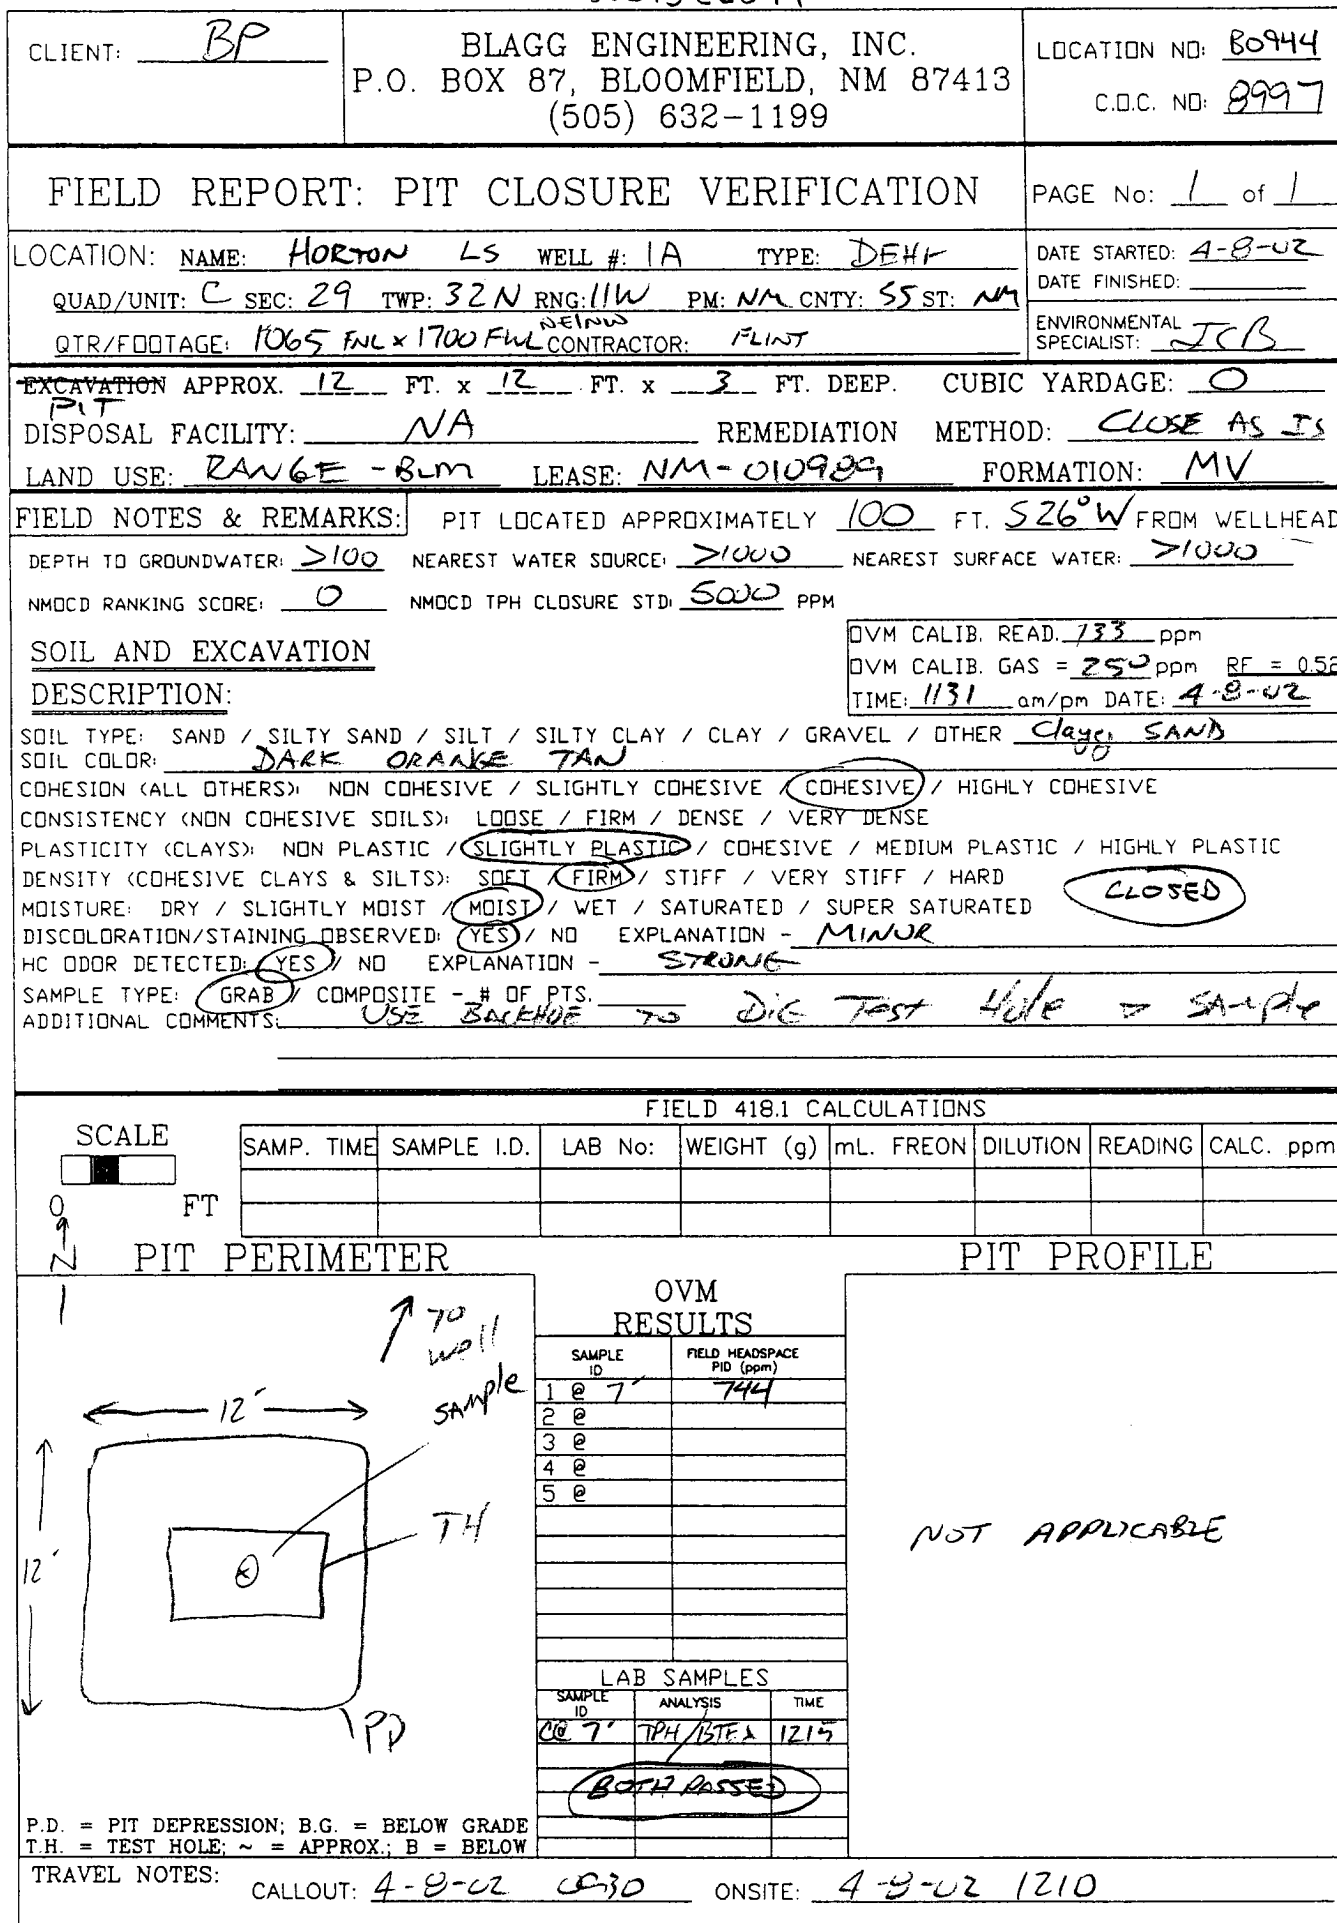 CLIENT: BP
BLAGG ENGINEERING, INC.
P.O. BOX 87, BLOOMFIELD, NM 87413
(505) 632-1199
LOCATION NO: B0944
C.O.C. NO: 8997
FIELD REPORT: PIT CLOSURE VERIFICATION
PAGE No: 1 of 1
LOCATION: NAME: HORTON LS WELL #: 1A TYPE: DEHY
QUAD/UNIT: C SEC: 29 TWP: 32N RNG: 11W PM: NM CNTY: SJ ST: NM
QTR/FOOTAGE: 1065 FNL x 1700 FWL NE/NW CONTRACTOR: FLINT
DATE STARTED: 4-8-02
DATE FINISHED:
ENVIRONMENTAL
SPECIALIST: JCB
EXCAVATION APPROX. 12 FT. x 12 FT. x 3 FT. DEEP. CUBIC YARDAGE: 0
PIT
DISPOSAL FACILITY: NA REMEDIATION METHOD: CLOSE AS IS
LAND USE: RANGE - BLM LEASE: NM-010989 FORMATION: MV
FIELD NOTES & REMARKS: PIT LOCATED APPROXIMATELY 100 FT. S26°W FROM WELLHEAD
DEPTH TO GROUNDWATER: >100 NEAREST WATER SOURCE: >1000 NEAREST SURFACE WATER: >1000
NMOCD RANKING SCORE: 0 NMOCD TPH CLOSURE STD: 5000 PPM
SOIL AND EXCAVATION
DESCRIPTION:
OVM CALIB. READ. 133 ppm
OVM CALIB. GAS = 250 ppm RF = 0.52
TIME: 1131 am/pm DATE: 4-8-02
SOIL TYPE: SAND / SILTY SAND / SILT / SILTY CLAY / CLAY / GRAVEL / OTHER Clayey SAND
SOIL COLOR: DARK ORANGE TAN
COHESION (ALL OTHERS): NON COHESIVE / SLIGHTLY COHESIVE / COHESIVE / HIGHLY COHESIVE
CONSISTENCY (NON COHESIVE SOILS): LOOSE / FIRM / DENSE / VERY DENSE
PLASTICITY (CLAYS): NON PLASTIC / SLIGHTLY PLASTIC / COHESIVE / MEDIUM PLASTIC / HIGHLY PLASTIC
DENSITY (COHESIVE CLAYS & SILTS): SOFT / FIRM / STIFF / VERY STIFF / HARD
CLOSED
MOISTURE: DRY / SLIGHTLY MOIST / MOIST / WET / SATURATED / SUPER SATURATED
DISCOLORATION/STAINING OBSERVED: YES / NO EXPLANATION - MINOR
HC ODOR DETECTED: YES / NO EXPLANATION - STRONG
SAMPLE TYPE: GRAB / COMPOSITE - # OF PTS.
ADDITIONAL COMMENTS: USE BACKHOE TO DIG Test Hole SAmple
FIELD 418.1 CALCULATIONS
SCALE
0 FT
SAMP. TIME SAMPLE I.D. LAB No: WEIGHT (g) mL. FREON DILUTION READING CALC. ppm
N
PIT PERIMETER
PIT PROFILE
TO
well
SAMple
12'
12'
TH
PD
OVM
RESULTS
SAMPLE ID FIELD HEADSPACE PID (ppm)
1 @ 7' 744
2 @
3 @
4 @
5 @
NOT APPLICABLE
LAB SAMPLES
SAMPLE ID ANALYSIS TIME
C@ 7' TPH/BTEX 1215
BOTH PASSED
P.D. = PIT DEPRESSION; B.G. = BELOW GRADE
T.H. = TEST HOLE; ~ = APPROX.; B = BELOW
TRAVEL NOTES: CALLOUT: 4-8-02 0930 ONSITE: 4-8-02 1210